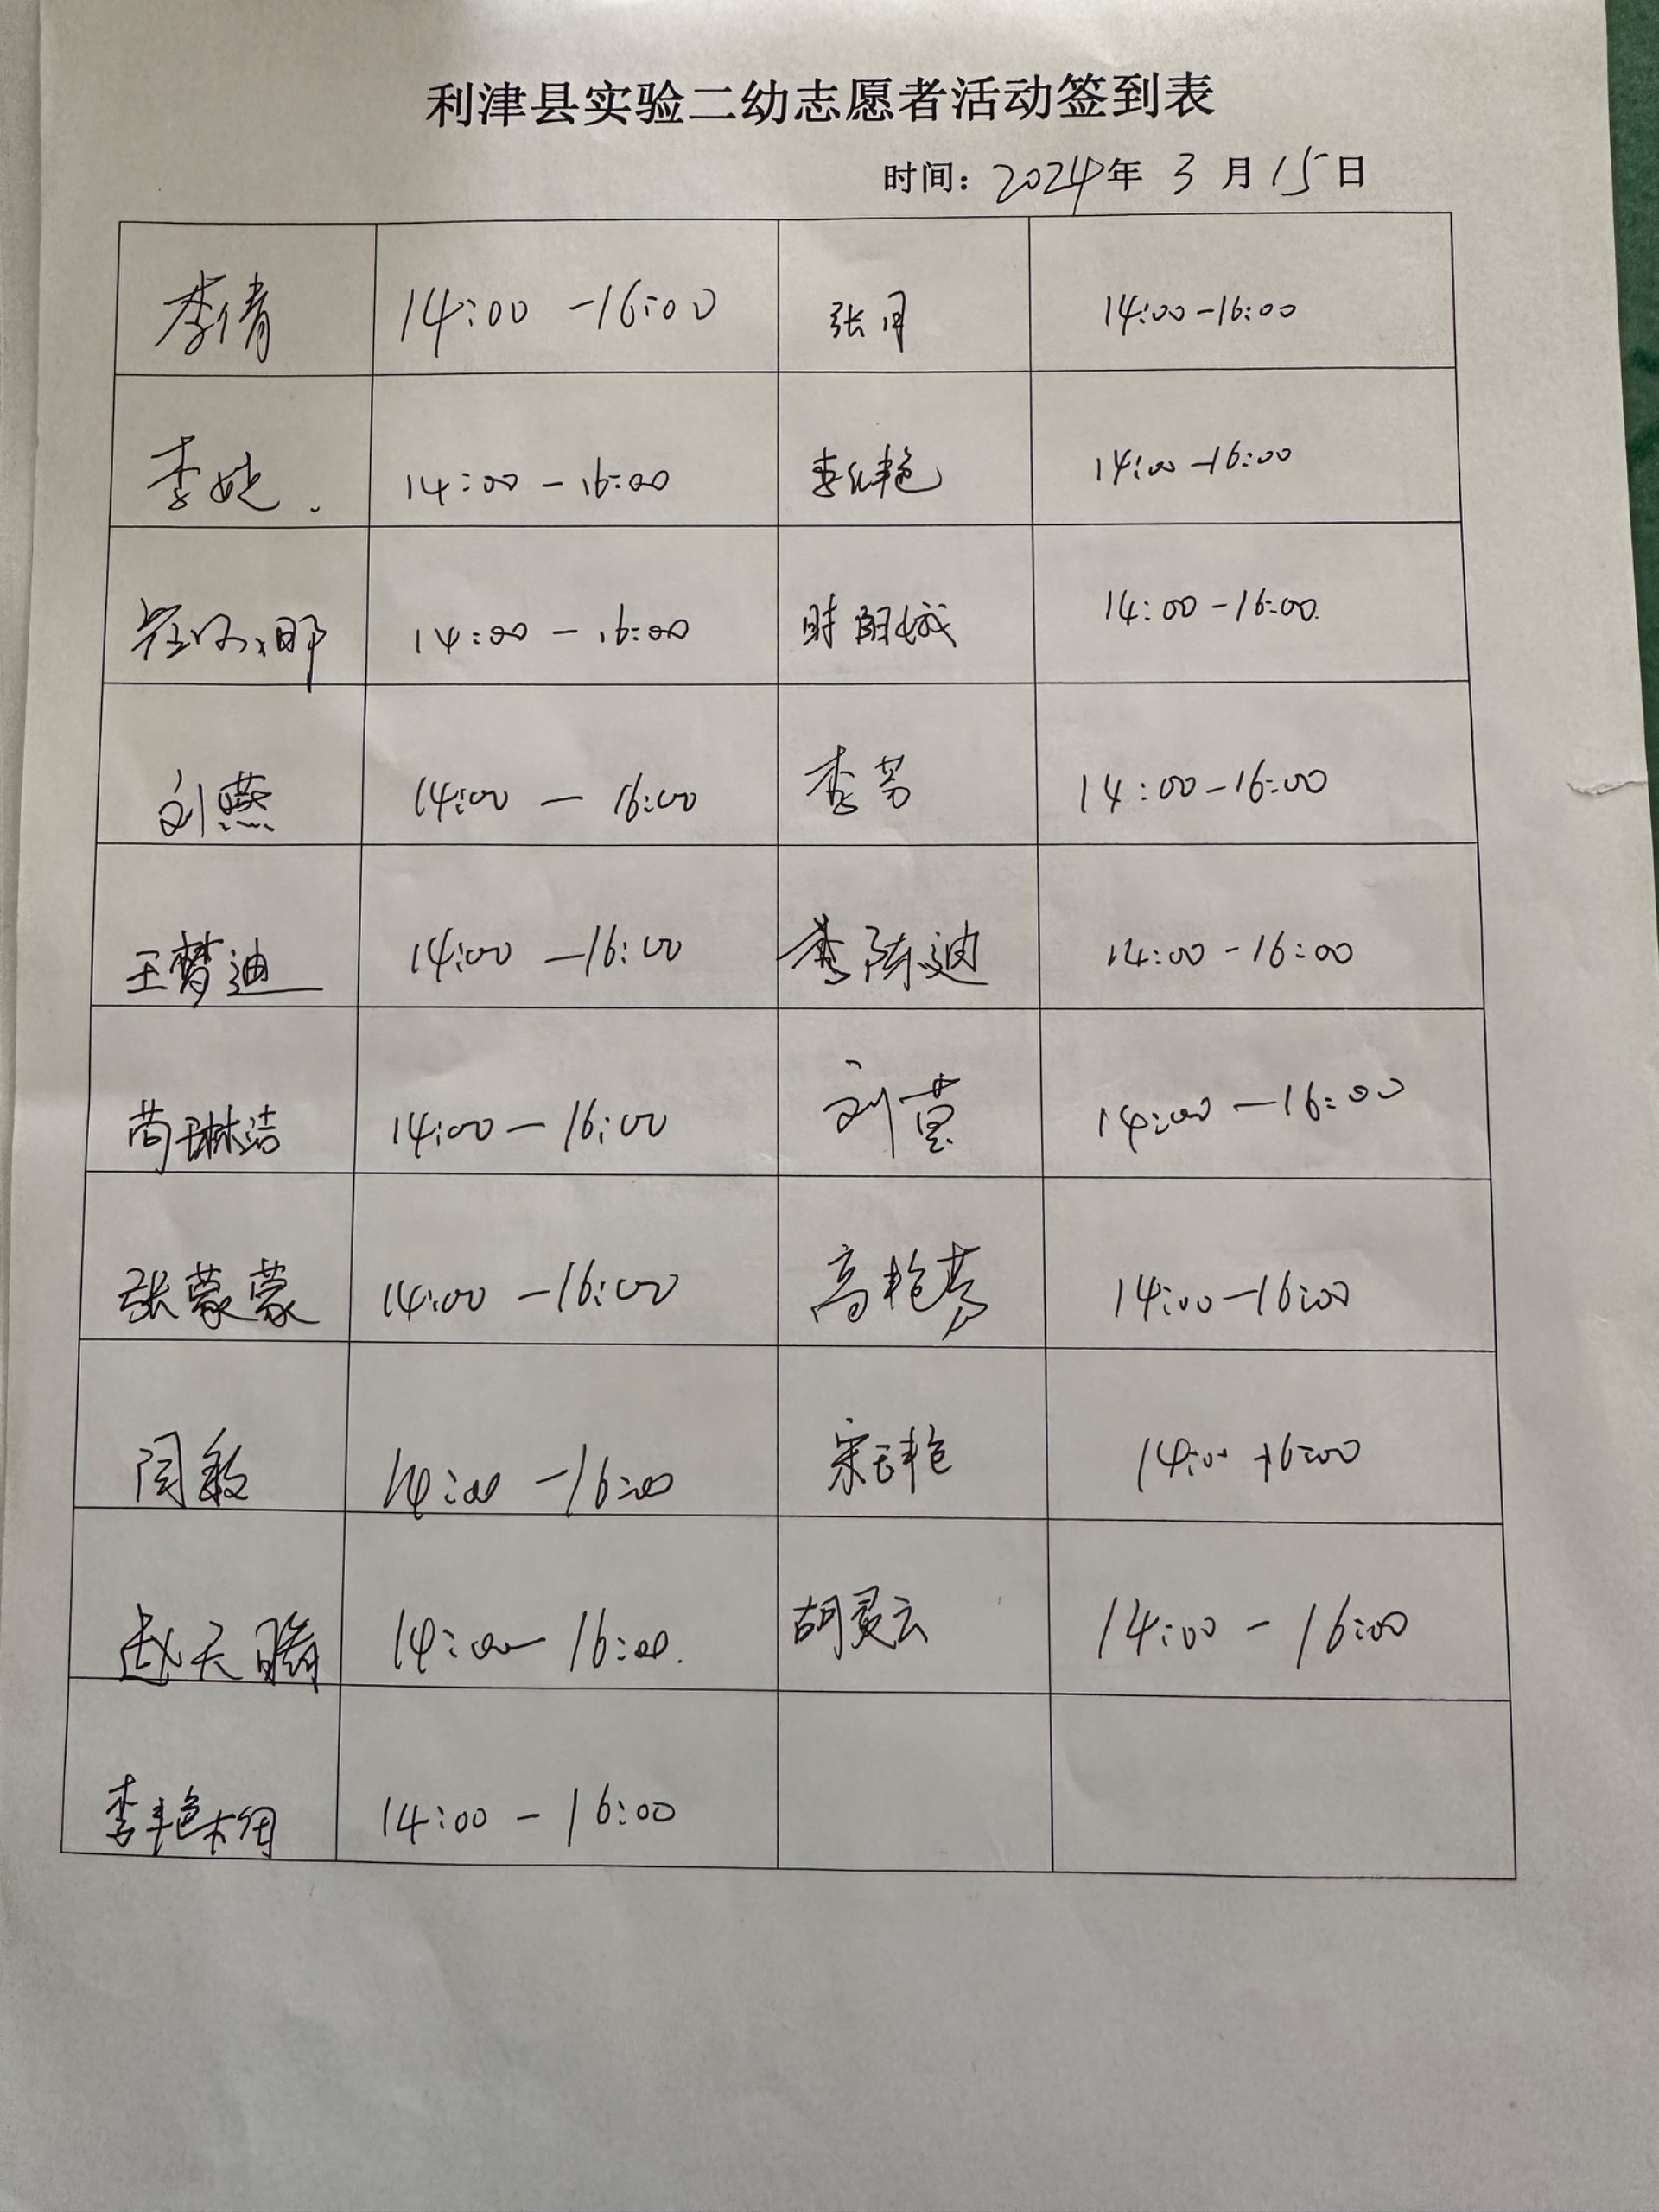 利津县实验二幼志愿者活动签到表
时间：2024年 3 月 15日
李倩 14:00 -16:00 张月 14:00-16:00
李 14:00 - 16:00 李红艳 14:00 -16:00
崔娜 14:00 - 16:00 14:00 -16:00.
刘燕 14:00 — 16:00 李芳 14:00-16:00
王梦迪 14:00 —16:00 李陈迪 14:00 -16:00
尚琳洁 14:00 — 16:00 刘 14:00 —16:00
张蒙蒙 14:00 -16:00 高艳芳 14:00-16:00
闫敏 14:00 -16:00 宋玉艳 14:00 -16:00
赵天腾 14:00- 16:00. 胡灵云 14:00 - 16:00
李艳 14:00 - 16:00